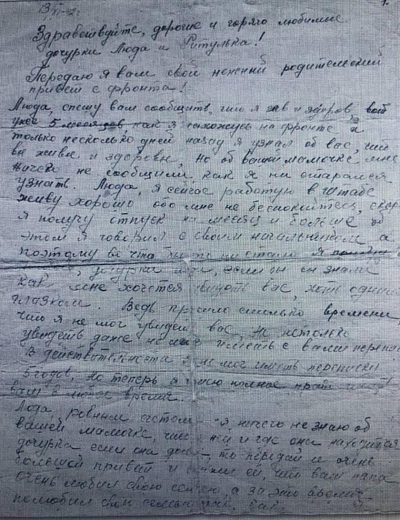 1.
Здравствуйте, дорогие и горячо любимые
дочурки Люда и Ритулька!
Передаю я вам свой нежный родительский
привет с фронта!
Люда, спешу вам сообщить, что я жив и здоров, вот
уже 5 месяцев как я нахожусь на фронте и
только несколько дней назад я узнал об вас, что
вы живы и здоровы. Но об вашей мамочке мне
ничего не сообщили как я ни старался
узнать. Люда, я сейчас работую в штабе
живу хорошо обо мне не беспокойтесь, скоро
я получу отпуск на месяц и больше об
этом я говорил с своим начальником а
поэтому
дочурки мои, если бы вы знали
как мне хочется видеть вас, хоть одним
глазком. Ведь прошло столько времени,
что я не мог увидеть вас, не только
увидеть даже не мог иметь с вами переписки
В действительности я не мог иметь переписки
но теперь я имею полное право
вам в любое время.
Люда, равным счетом я ничего не знаю об
вашей мамочке, и где она находится
дочурка если она дома то передай ей очень
большой привет и скажи ей, что ваш папа
очень любил свою семью, а за это время
полюбил